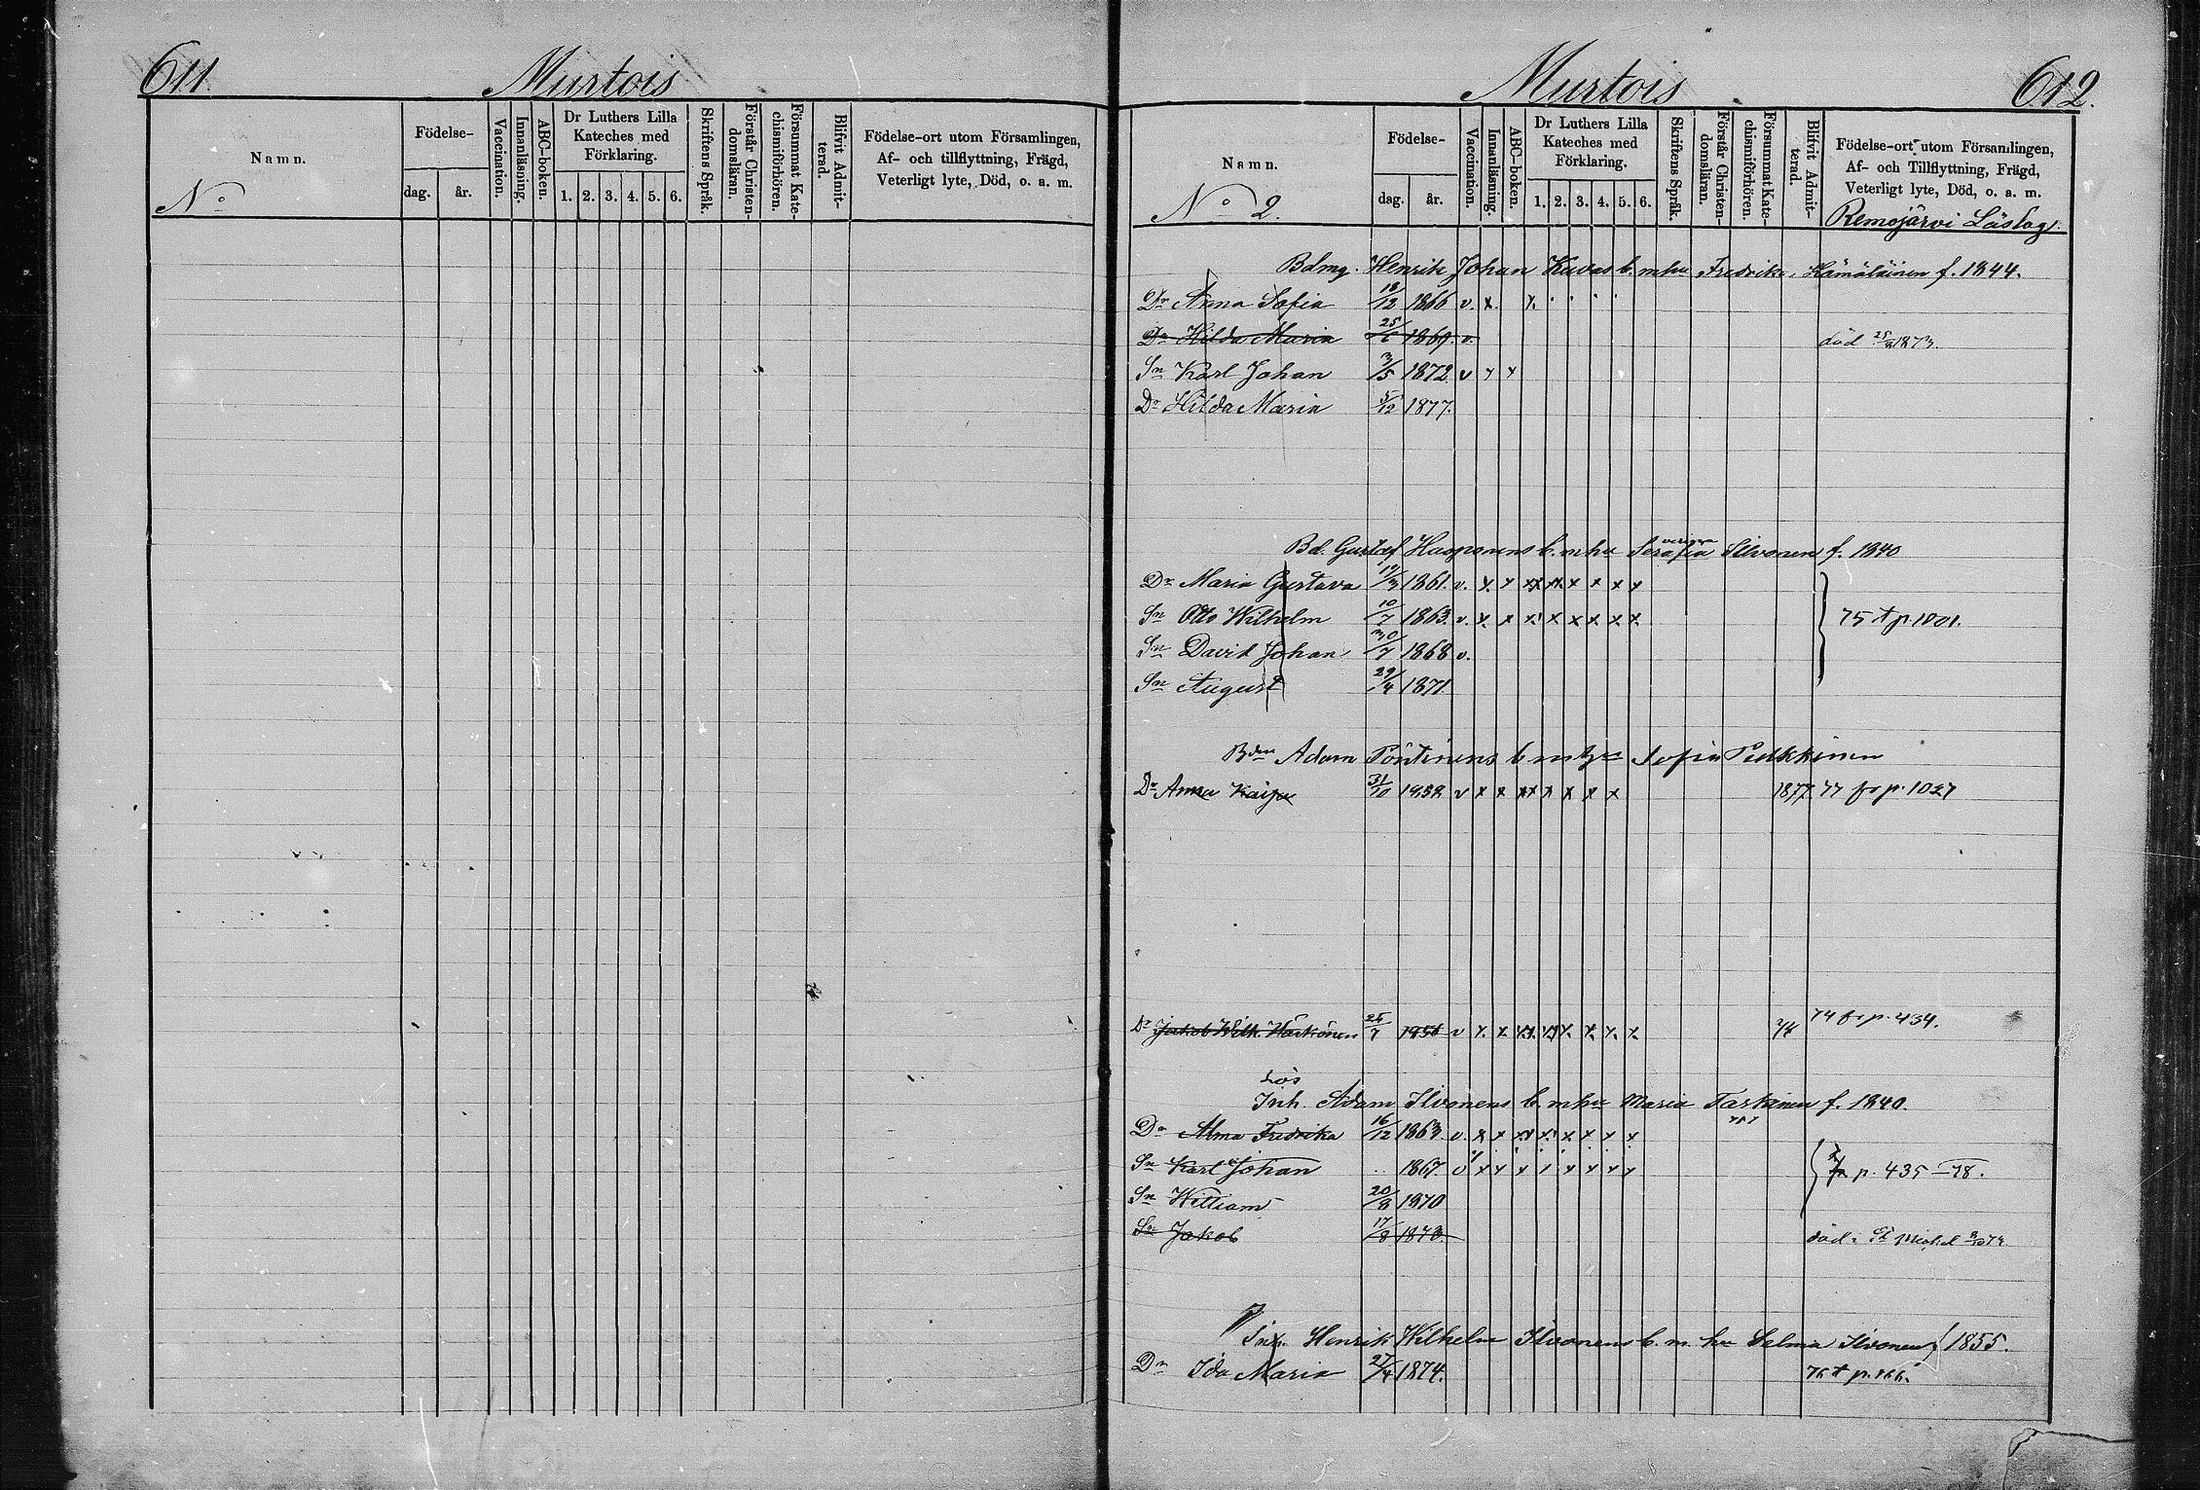 611. Murtois
Namn. Födelse- dag. år. Vaccination. Innanläsning. ABC-boken. Dr Luthers Lilla Kateches med Förklaring. 1. 2. 3. 4. 5. 6. Skriftens Språk. Förstår Christen-domsläran. Försummat Kate-chismiförhören. Blifvit Admit-terad. Födelse-ort utom Församlingen, Af- och tillflyttning, Frägd, Veterligt lyte, Död, o. a. m.
No
Murtois 612.
Namn. Födelse- dag. år. Vaccination. Innanläsning. ABC-boken. Dr Luthers Lilla Kateches med Förklaring. 1. 2. 3. 4. 5. 6. Skriftens Språk. Förstår Christen-domsläran. Försummat Kate-chismiförhören. Blifvit Admit-terad. Födelse-ort utom Församlingen, Af- och Tillflyttning, Frägd, Veterligt lyte, Död, o. a. m.
No 2. Remojärvi Läslag.
Bdmg. Henrik Johan Kuvas b. m hu Fredrika Hämäläinen f. 1844.
Dr Anna Sofia 18/12 1866 v. x. x.
Dr Hilda Maria 25/6 1869. v. död 1873.
Sn Karl Johan 3/5 1872 v x x
Dr Hilda Maria 5/12 1877.
Bd. Gustaf Haaponens b. m hu Serafia Ilvonen f. 1840
Dr Maria Gustava 1861. v. x x xx xx x x x x
Sn Otto Wilhelm 10/7 1863. v. x. x x x x x x. x.
Sn David Johan 30/7 1868 v. 75 t p 1001.
Sn August 29/4 1871
Adam Pöntinens b m hu Sofia Pulkkinen
Dr Anna Kaisa 31/10 v x x xx x x x x 1877 77 fr p. 1027
Jakob Wilh. Härkönen 25/7 v x. x x. x. x. 74 fr p. 434.
Lös
Inh. Adam Ilvonens b. m hu Maria Tarkiainen f. 1840.
Dr Alma Fredrika 16/12 1863 v. x x xx x x x x x
Sn Karl Johan 1867. v x x x x x x x p. 435 -78.
Sn William 20/8 1870
Sn Jakob 17/8 1873. död i St Michel
Inh. Henrik Wilhelm Ilvonens b. m. hu Selma Ilvonen f 1855.
Dr Ida Maria 27/4 1874. 76 t p. 166.